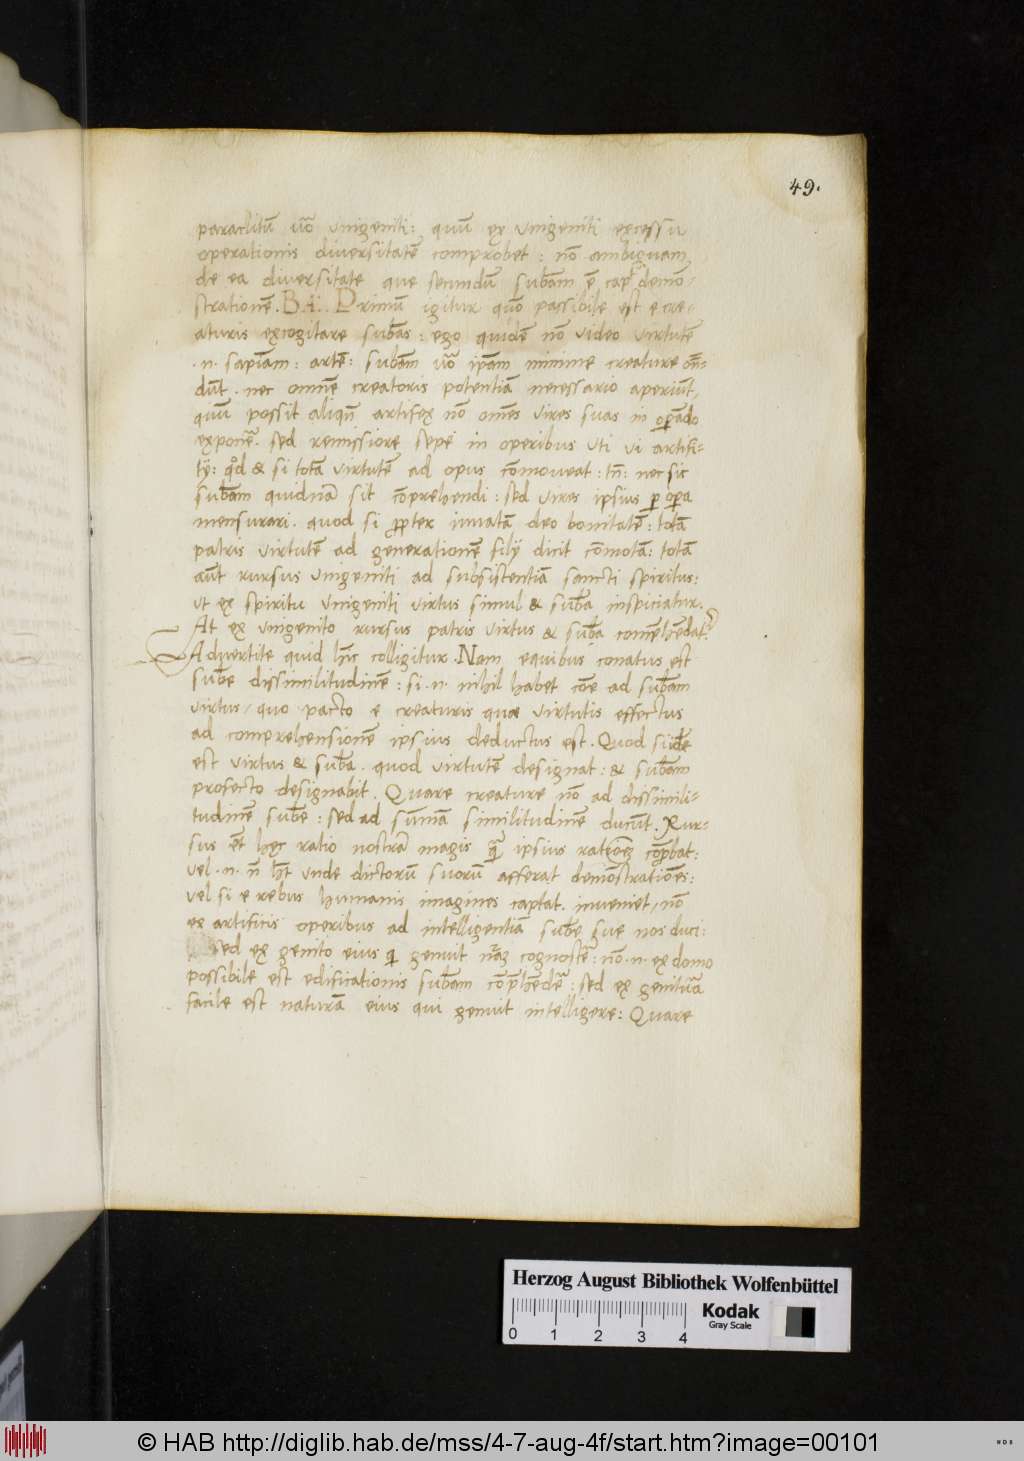 49.
paraclitū u͞o unigeniti: quū ex unigeniti excessu
operationis diversitatē comprobet: nō ambiguam
de ea diversitate que secundū sub̄am ē cap demō-
strationē. BA. Primū igitur quō passibile est e cre-
aturis excogitare sub̄as: ego quidē nō video virtutē
.n. sapīam: artē: sub̄am u͞o ip̄am minime creature on̄-
dūt. nec omnē creatoris potentiā necessario aperiūt,
quū possit aliqn̄ artifex nō om̄es vires suas in oꝑādo
exponē. sed remissiore sepe in operibus uti vi artifi-
tÿ: qd & si totā virtutē ad opus cōmoveat: tn̄: nec sic
sub̄am quidnā sit cōprehendi: sed vires ipsius ꝑ oꝑa
mensurari. quod si ꝓpter innatā deo bonitatē: totā
patris virtutē ad generationē filÿ dicit cōmotā: totā
aūt rursus unigeniti ad subsistentiā sancti spiritus:
ut ex spiritu unigeniti virtus simul & sub̄a inspiciatur.
At ex unigenito rursus patris virtus & sub̄a comp̄hēdat.
Advertite quid hīc colligitur. Nam equibus conatus est
sub̄e dissimilitudinē: si .n. nihil habet cōe ad sub̄am
virtus, quo pacto e creaturis quæ virtutis effectus
ad comprehensionē ipsius deductus est. Quod si idē
est virtus & sub̄a. quod virtutē designat: & sub̄am
profecto designabit. Quare creature nō ad dissimili-
tudinē sub̄e: sed ad sum̄ā similitudinē ducūt. Rur-
sus ēt hęc ratio nostrā magis qm̄ ipsius rationē cōprobat:
vel .n. n̄ h̄t unde dictorū suorū afferat demōstrationes:
vel si e rebus humanis imagines captat. inveniet, nō
ex artificis operibus ad intelligentiā sub̄e sue nos duci:
sed ex genito eius qi genuit nr̄am cognosce: nō .n. ex domo
possibile est edificationis sub̄am cōp̄hēdē: sed ex genitura
facile est naturā eius qui genuit intelligere: Quare
Herzog August Bibliothek Wolfenbüttel
0 1 2 3 4
Kodak
Gray Scale
© HAB http://diglib.hab.de/mss/4-7-aug-4f/start.htm?image=00101